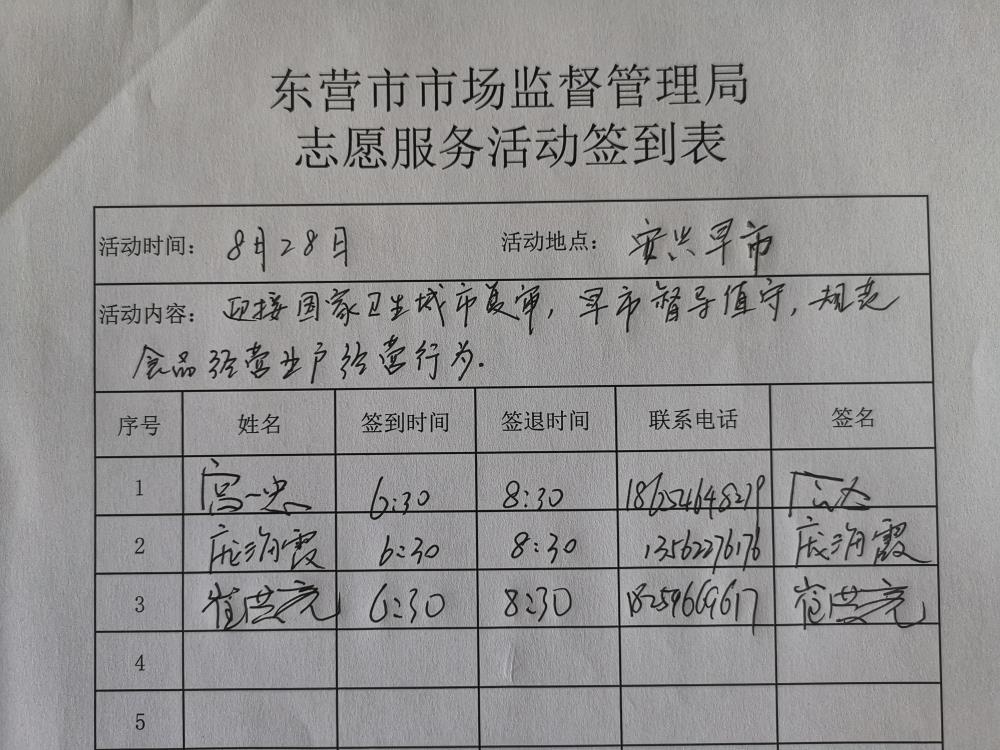 东营市市场监督管理局
志愿服务活动签到表
活动时间： 8月28日 活动地点： 安兴早市
活动内容： 迎接国家卫生城市复审，早市督导值守，规范
食品经营业户经营行为.
序号 姓名 签到时间 签退时间 联系电话 签名
1 6:30 8:30 18654648279
2 庞海霞 6:30 8:30 13562276176 庞海霞
3 崔洪亮 6:30 8:30 18259669617 崔洪亮
4
5